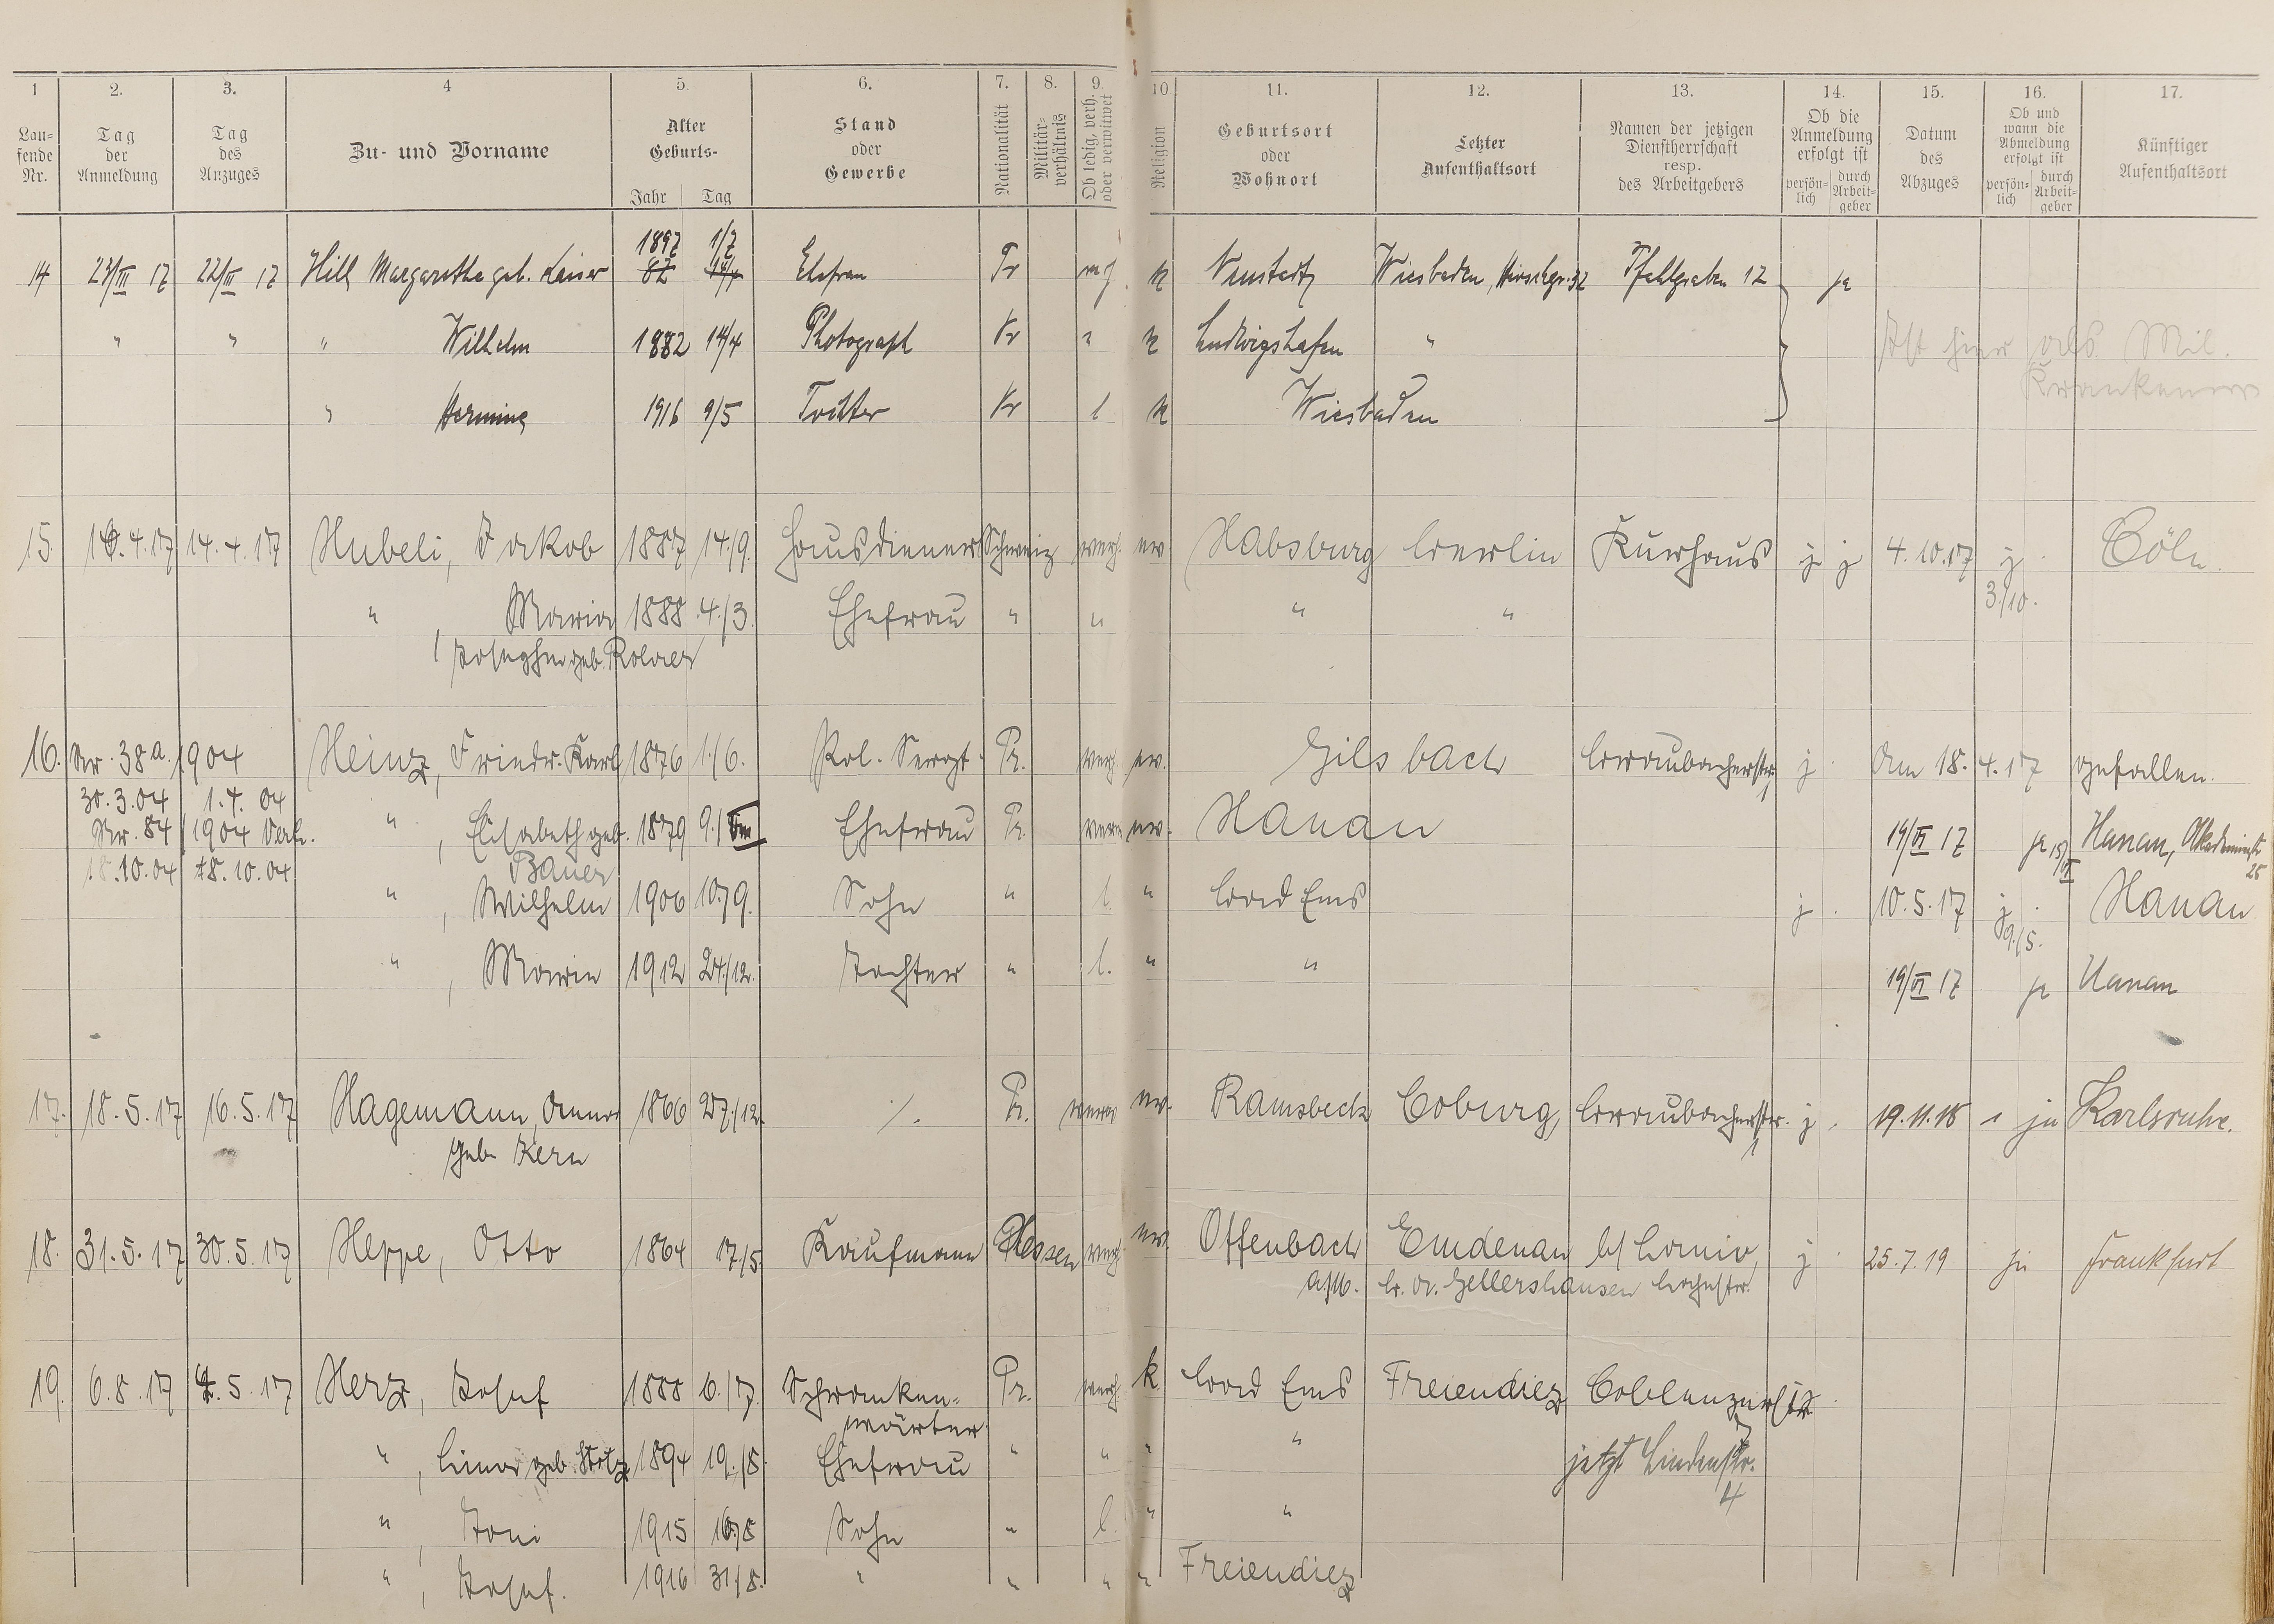 1 2. 3. 4 5. 6. 7. 8. 9. 10 11. 12. 13. 14. 15. 16. 17.
Lau-
fende
Nr.
Tag
der
Anmeldung
Tag
des
Anzuges
Zu- und Vorname
Alter
Geburts-
Jahr Tag
Stand
oder
Gewerbe
Nationalität
Militär-
verhältnis
Ob ledig, verh.
oder verwitwet
Religion
Geburtsort
oder
Wohnort
Letzter
Aufenthaltsort
Namen der jetzigen
Dienstherrschaft
resp.
des Arbeitgebers
Ob die
Anmeldung
erfolgt ist
persön-
lich
durch
Arbeit-
geber
Datum
des
Abzuges
Ob und
wann die
Abmeldung
erfolgt ist
persön-
lich
durch
Arbeit-
geber
Künftiger
Aufenthaltsort
1897 1/7
14 27/III 17 22/III 17 Hill Margarethe geb. Kaiser 82 14/4 Ehefrau Pr k Neustadt Wiesbaden, Hirschgr. 32 Pfahlgraben 12 ja
" " " Wilhelm 1882 14/4 Photograph Pr " k Ludwigshafen "
Ist hier als Mil.
" Hermine 1916 9/5 Tochter Pr l k Wiesbaden
15. 16.4.17 14.4.17 Hubeli, Jakob 1887 14./9. Hausdiener Schweiz verh. ev. Habsburg Berlin Kurhaus j j 4.10.17 j Cöln.
3./10.
" , Maria 1888 4./3. Ehefrau " " " "
Josephe geb.
16. Nr. 38a. 1904 Heinz, Friedr. Karl 1876 1./6. Pol. Sergt. Pr. verh. ev. Gilsbach Braubacherstr. j. Am 18.4.17 gefallen.
30.3.04 1.4.04
Nr. 84 1904 Verh. " , Elisabeth geb. 1879 9./ Ehefrau Pr. ev. Hanau 19/VI 17 ja Hanau,
25
18.10.04 18.10.04 Bauer
" , Wilhelm 1906 10./9. Sohn " l. " Bad Ems j. 10.5.17 j. Hanau
9./5.
" , Marie 1912 24./12. Tochter " l. " " 19/VI 17 ja Hanau
17. 18.5.17 16.5.17 Hagemann, Anna 1866 27./12. ./. Pr. ev. Ramsbeck Coburg, Braubacherstr. j. 19.11.18 ja Karlsruhe.
geb. Kern
18. 31.5.17 30.5.17 Heppe, Otto 1864 17/5. Kaufmann Hessen verh. ev. Offenbach Emdenau j. 25.7.19 ja Frankfurt
a/M. b. Dr. Gellershausen
19. 6.8.17 5.17 Herz, Josef 1888 6./7. Schranken- Pr. verh. k. Bad Ems Freiendiez Coblenzerstr.
wärter
" , Lina geb. 1894 19./8. Ehefrau " " " " jetzt Lindenstr.
4
" , Toni 1915 16./8 Sohn " l. " "
" , Josef. 1916 31./8. " " " " Freiendiez